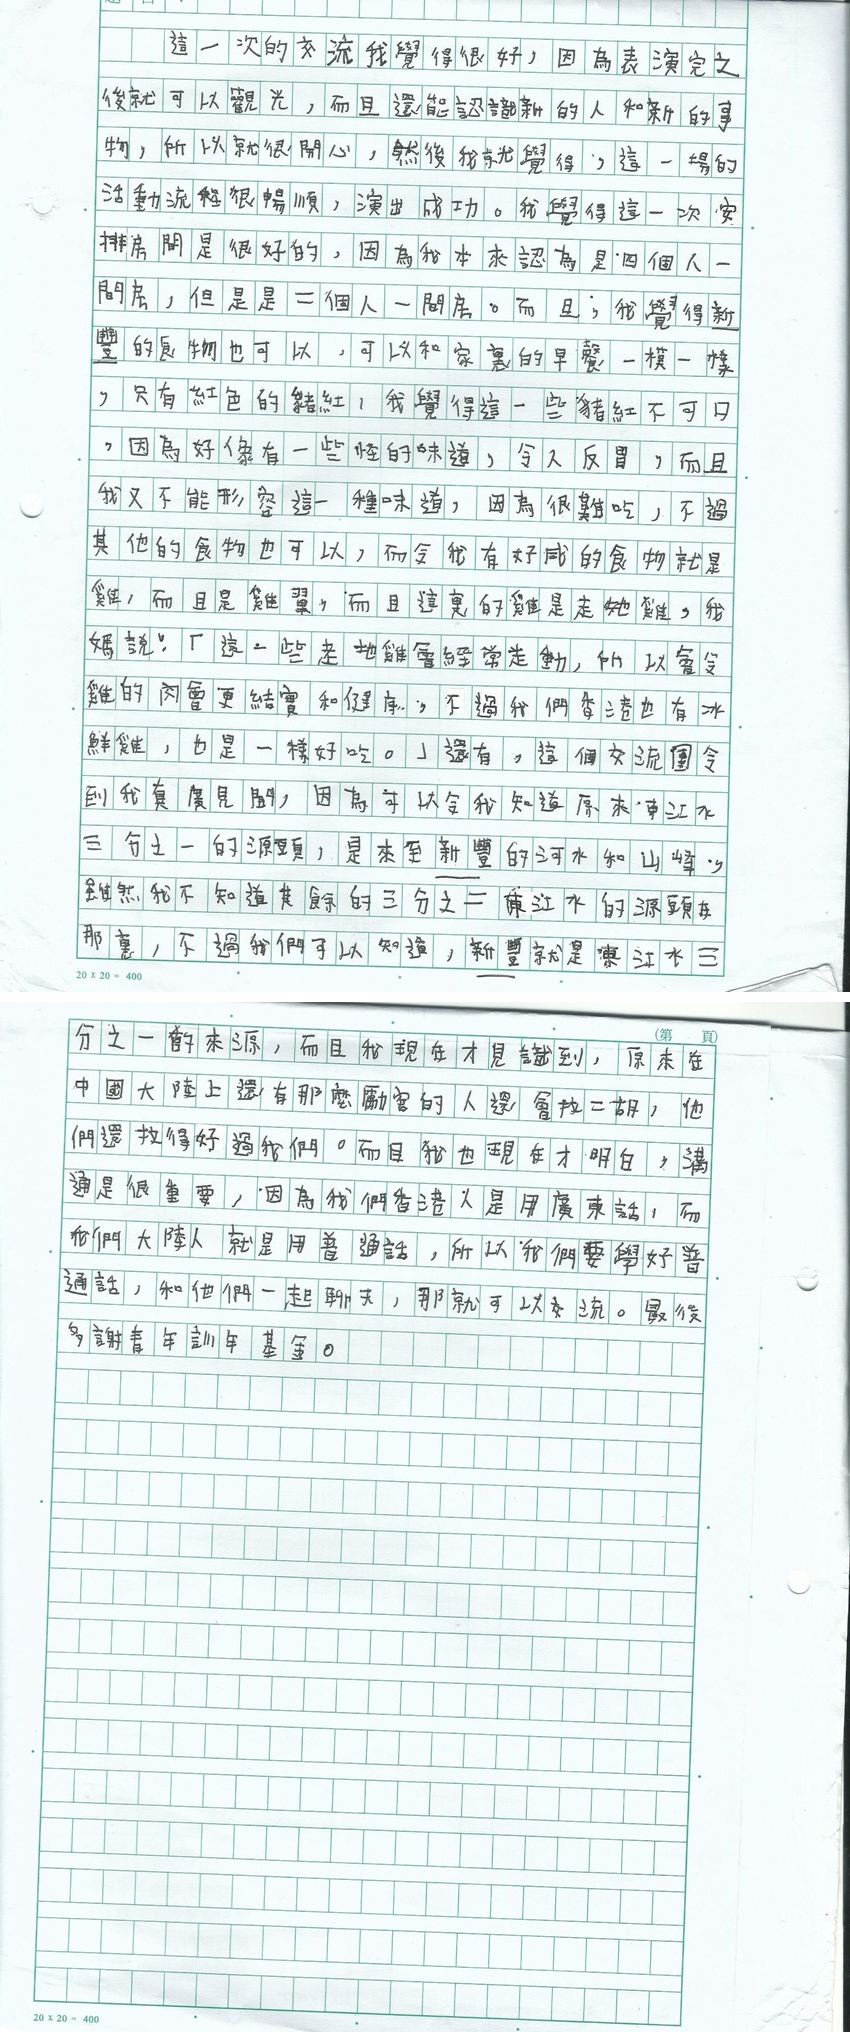 這一次的交流我覺得很好，因為表演完之
後就可以觀光，而且還能認識新的人和新的事
物，所以就很開心，然後我就覺得，這一場的
活動流程很暢順，演出成功。我覺得這一次安
排房間是很好的，因為我本來認為是四個人一
間房，但是是二個人一間房。而且，我覺得新
豐的食物也可以，可以和家裏的早餐一模一樣
，只有紅色的豬紅，我覺得這一些豬紅不可口
，因為好像有一些怪的味道，令人反胃，而且
我又不能形容這一種味道，因為很難吃，不過
其他的食物也可以，而令我有好感的食物就是
雞，而且是雞翼，而且這裏的雞是走地雞，我
媽說：「這一些走地雞會經常走動，所以會令
雞的肉會更結實和健康，不過我們香港也有冰
鮮雞，也是一樣好吃。」還有，這個交流團令
到我真廣見聞，因為可以令我知道原來東江水
三分之一的源頭，是來至新豐的河水和山峰，
雖然我不知道其餘的三分之二東江水的源頭在
那裏，不過我們可以知道，新豐就是東江水三
20 x 20 = 400
(第 頁)
分之一的來源，而且我現在才見識到，原來在
中國大陸上還有那麼勵害的人還會拉二胡，他
們還拉得好過我們。而且我也現在才明白，溝
通是很重要，因為我們香港人是用廣東話，而
我們大陸人就是用普通話，所以我們要學好普
通話，和他們一起聊天，那就可以交流。最後
多謝青年訓年基金。
20 x 20 = 400